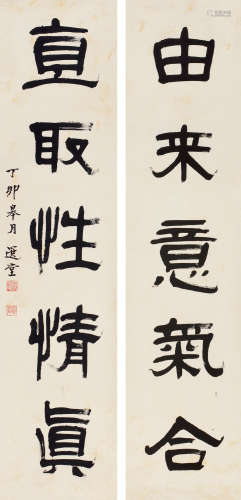 由来意氣合
直取性情真
丁卯皋月 選堂